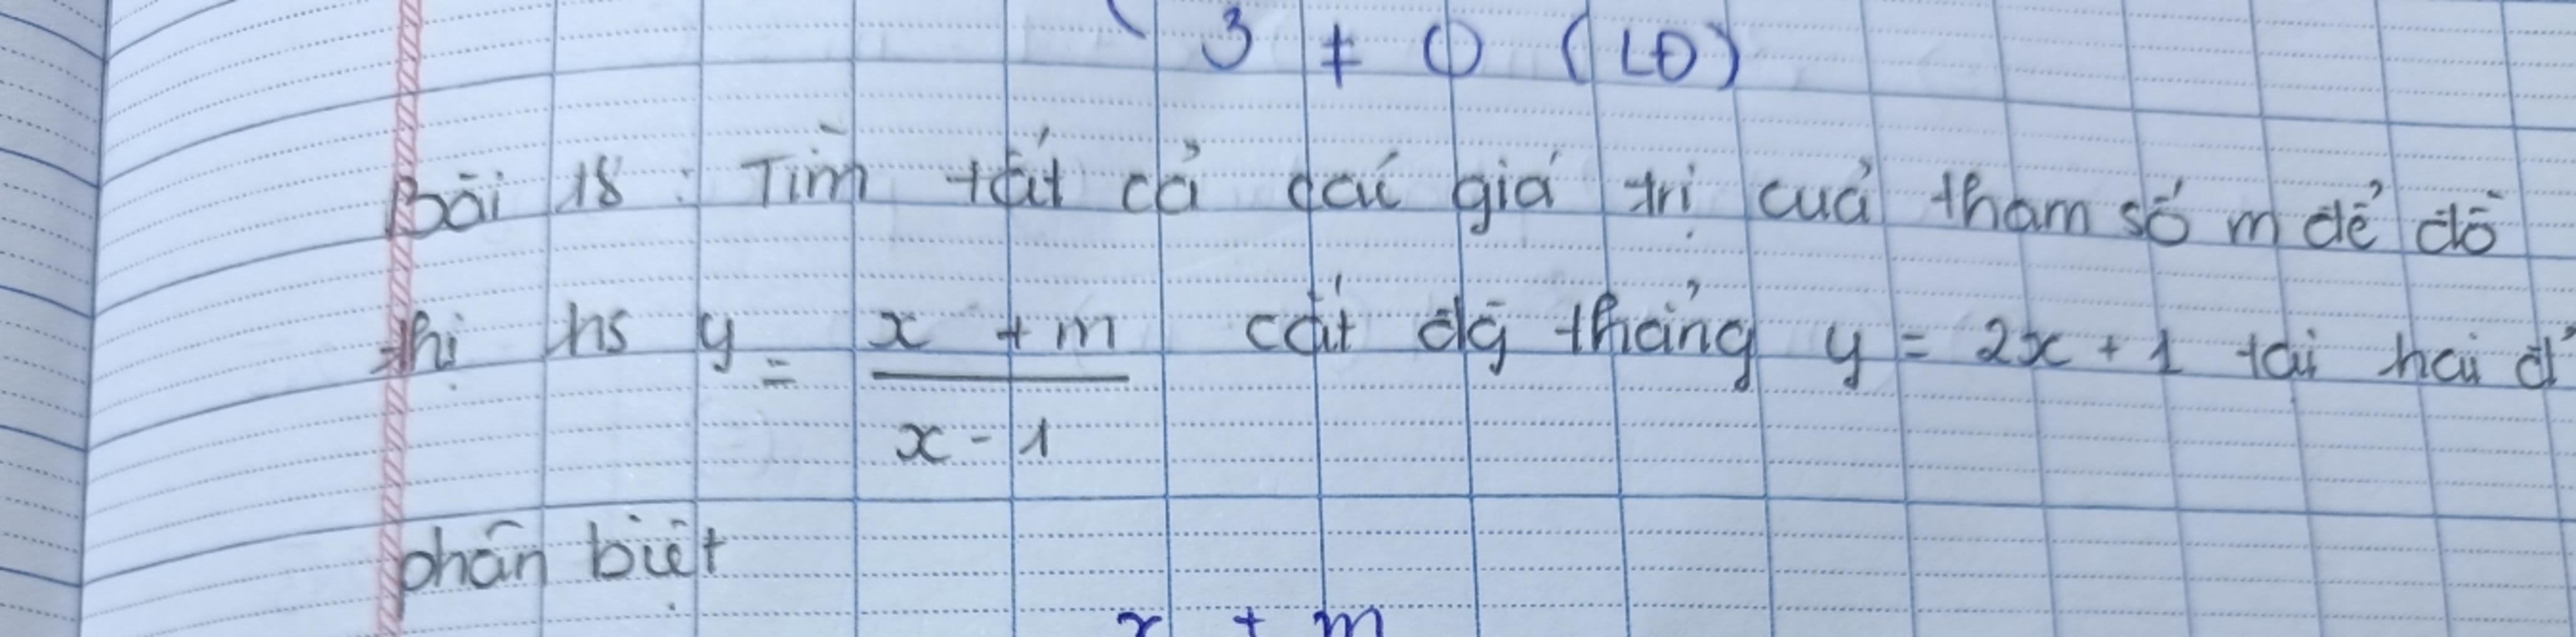 3 ≠ 0 (LĐ)
Bài 18 : Tìm tất cả các giá trị của tham số m để đồ
thị hs y = \frac{x + m}{x - 1} cắt đg thẳng y = 2x + 1 tại hai đ'
phân biệt
x + m